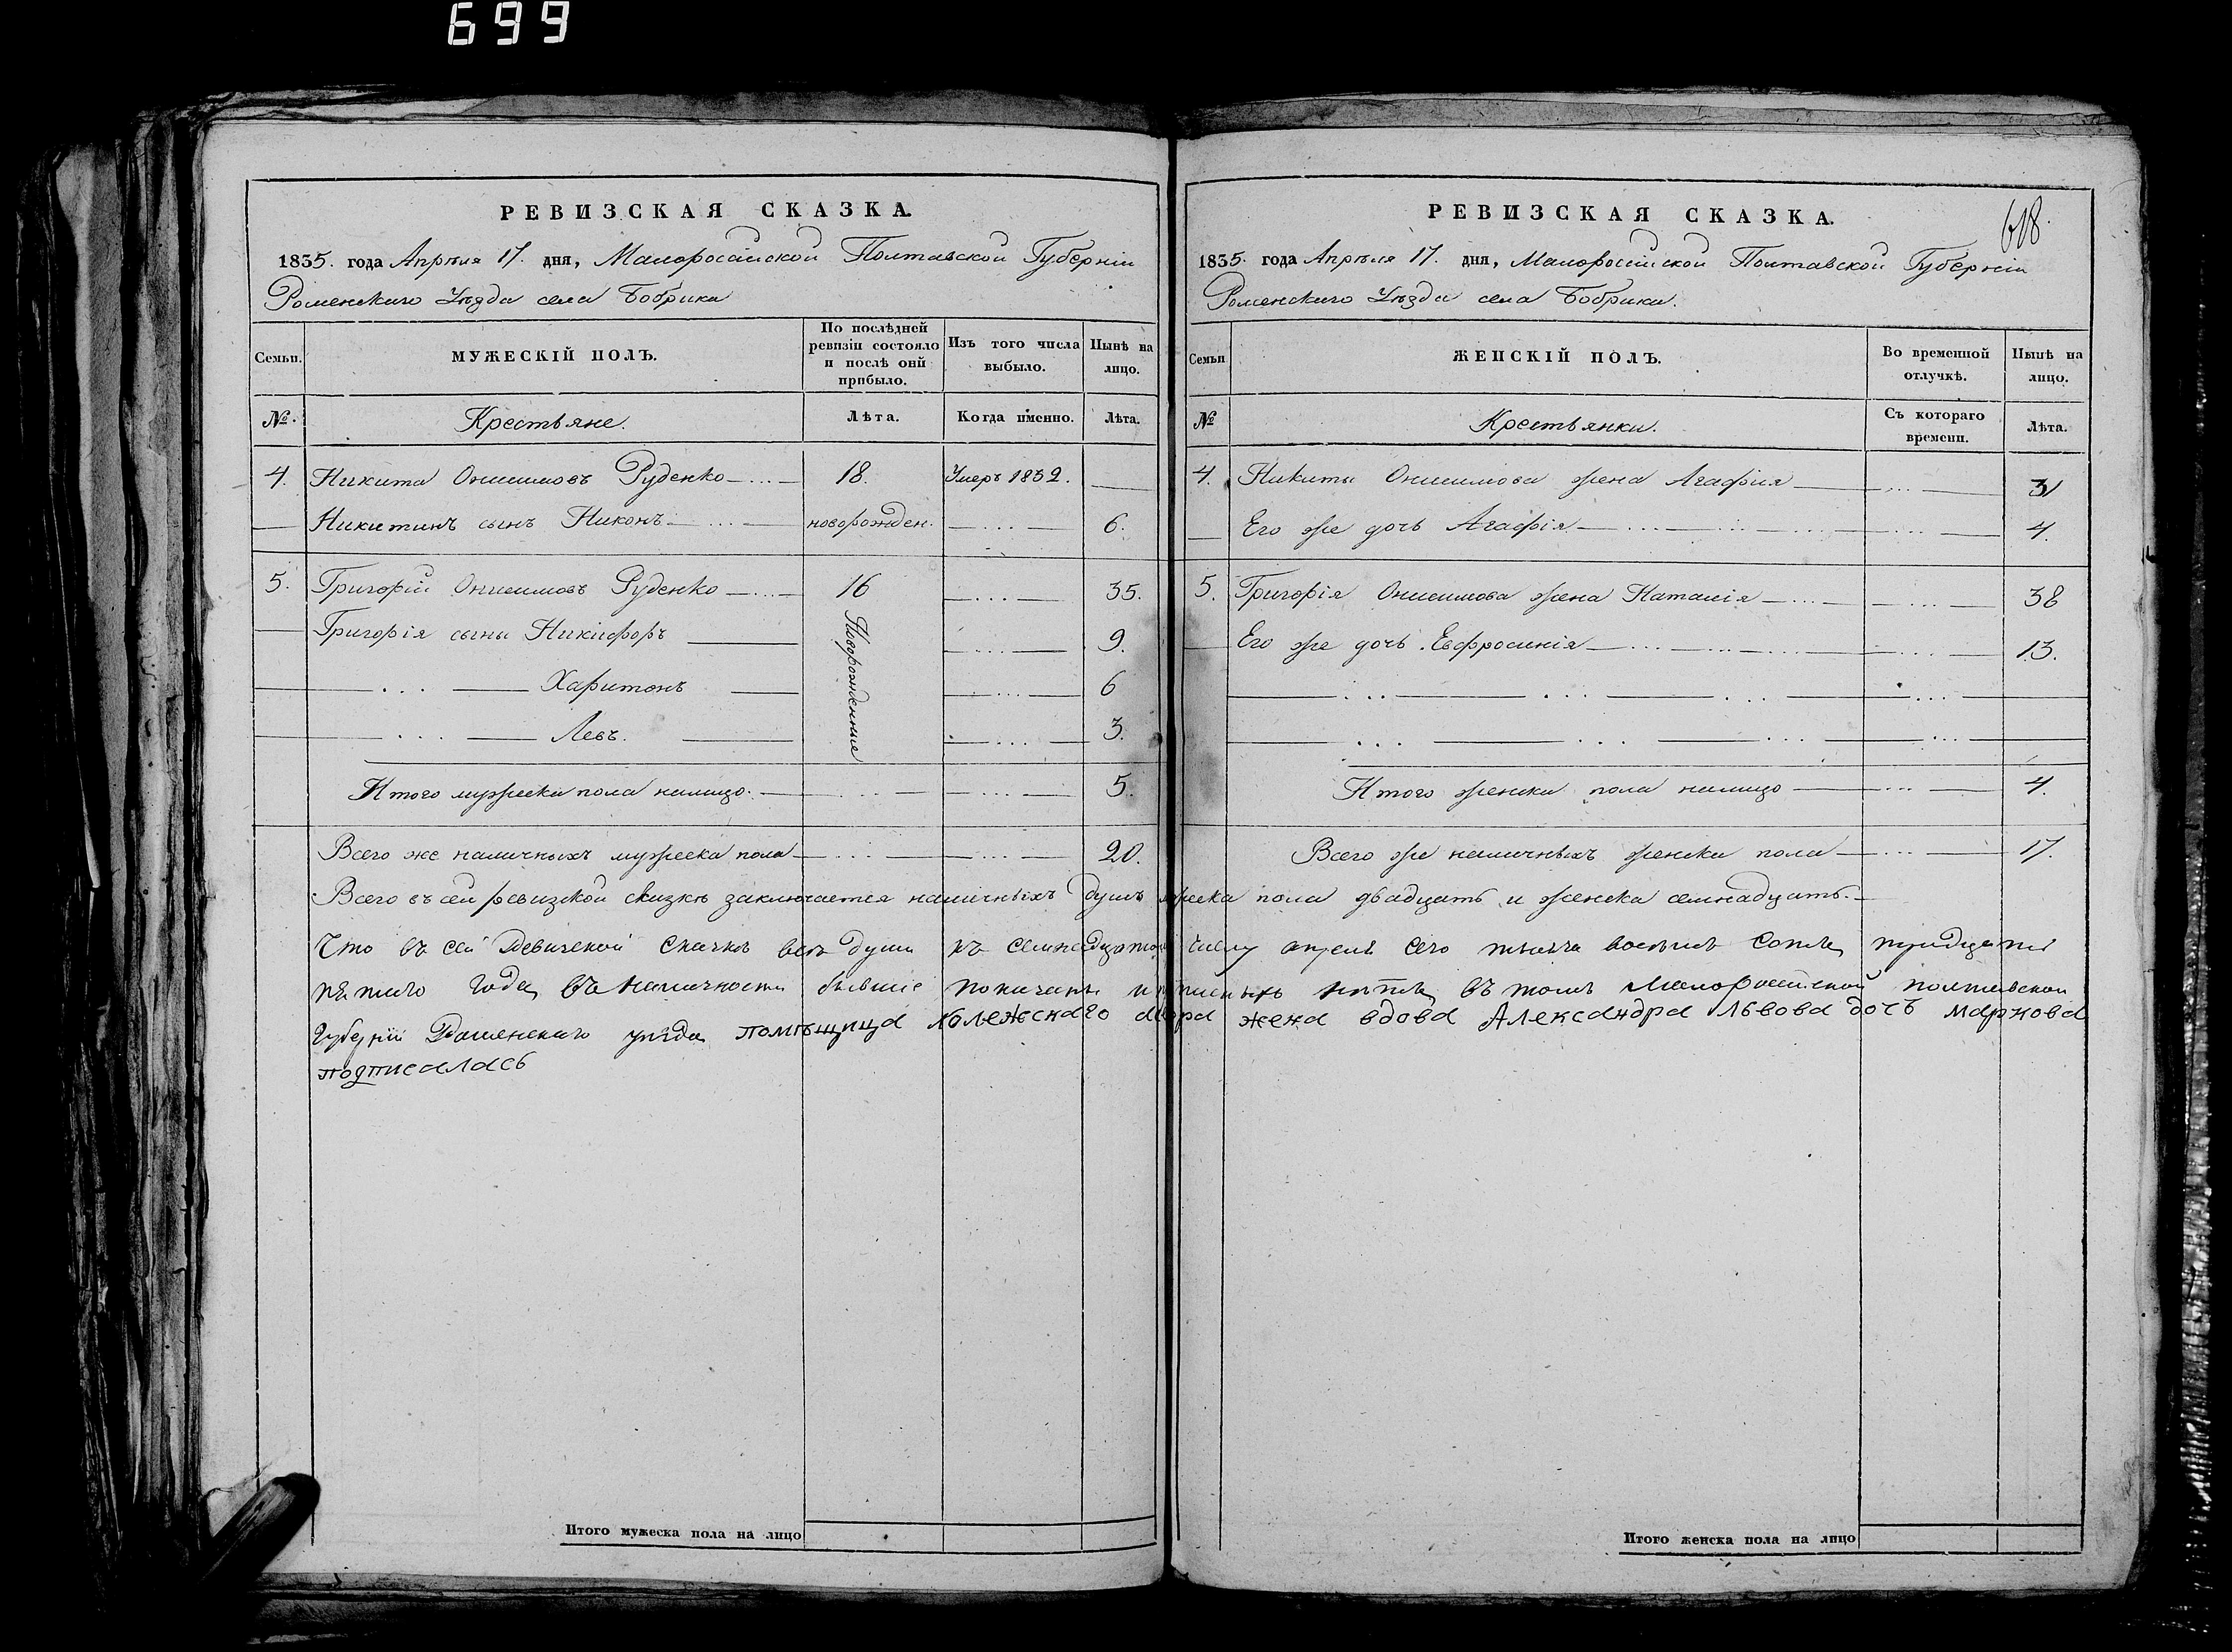 699
РЕВИЗСКАЯ СКАЗКА.
1835. года Апрѣля 17. дня, Малоросійской Полтавской Губерніи
Роменскаго Уѣзда села Бобрика
Семьи.
МУЖЕСКІЙ ПОЛЪ.
По послѣдней ревизіи состояло и послѣ оной прибыло.
Изъ того числа выбыло.
Нынѣ на лицо.
№.
Крестьяне.
Лѣта.
Когда именно.
Лѣта.
4. Никита Онисимовъ Руденко 18. Умеръ 1832.
Никитинъ сынъ Никонъ новорожден. 6.
5. Григорій Онисимовъ Руденко 16 35.
Григорія сыны Никифоръ 9.
Харитонъ 6
Левъ. 3.
Новорожденные
Итого мужеска пола налицо. 5.
Всего же наличныхъ мужеска пола 20.
РЕВИЗСКАЯ СКАЗКА.
618.
1835. года Апрѣля 17. дня, Малоросійской Полтавской Губерніи
Роменскаго Уѣзда села Бобрика.
Семьи
ЖЕНСКІЙ ПОЛЪ.
Во временной отлучкѣ.
Нынѣ на лицо.
№
Крестьянки.
Съ котораго времени.
Лѣта.
4. Никиты Онисимова жена Агафия 31
Его же дочь Агафія 4.
5. Григорія Онисимова жена Наталія 38
Его же дочь Евфросинія 13.
Итого женска пола налицо 4.
Всего же наличныхъ женска пола 17.
Всего въ сей ревизской сказкѣ заключается наличныхъ душъ мужеска пола двадцать и женска семнадцать.
Что въ сей Ревизской Сказкѣ всѣ души къ семнадцатому числу апреля сего тысяча восемь сотъ тридцать
пятаго года въ наличности бывшіе показаны и въ томъ Малоросійской полтавской
Губерніи Роменскаго уѣзда помѣщица колежскаго жена вдова Александра Львова дочъ маркова
подписалась
Итого мужеска пола на лицо
Итого женска пола на лицо